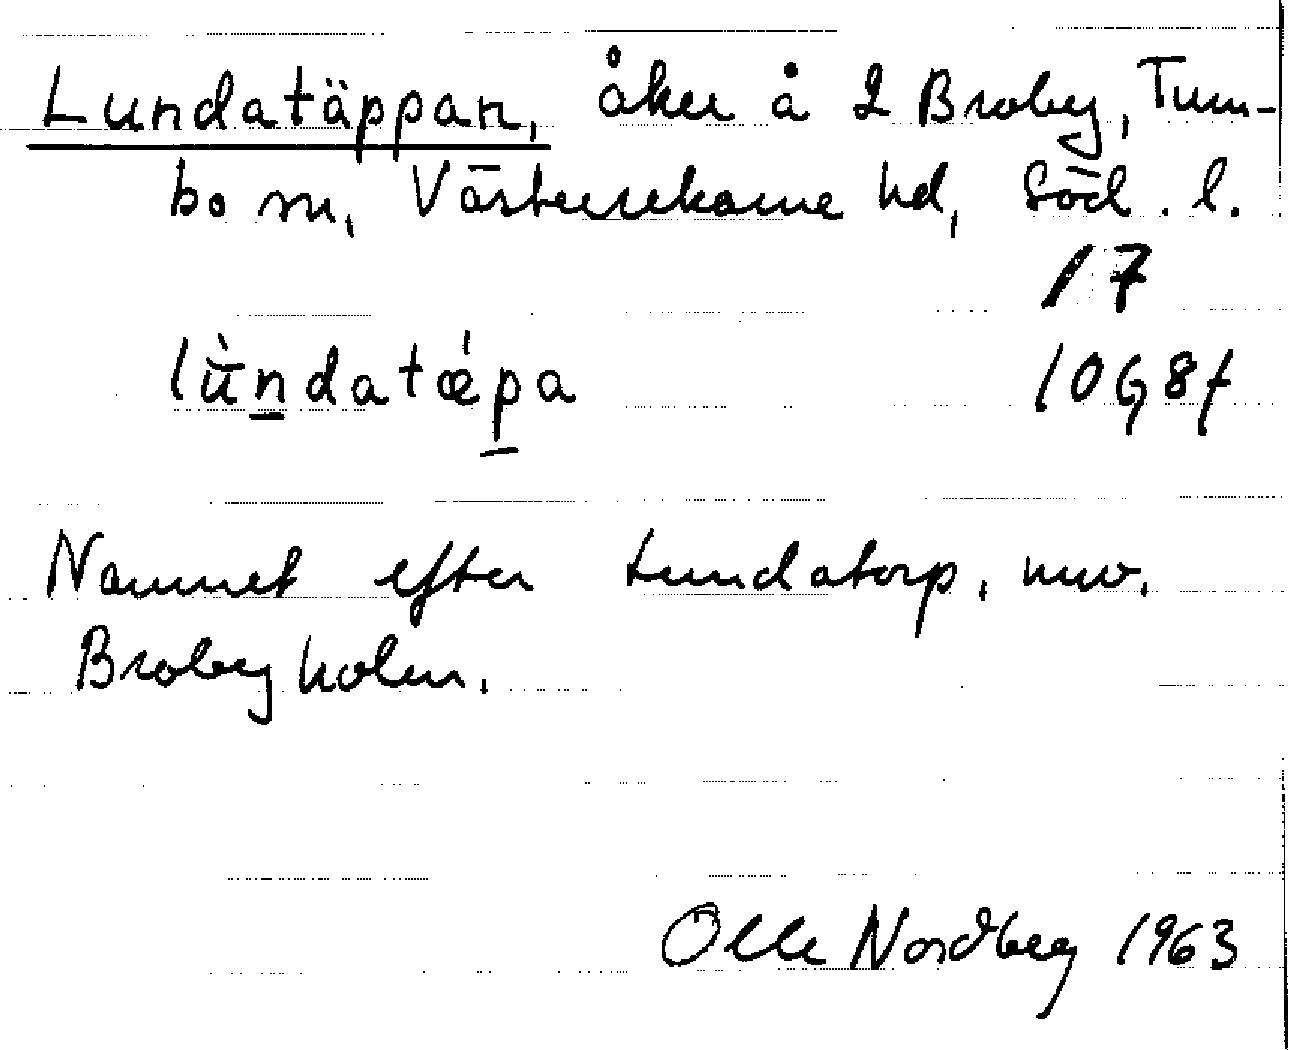 Lundatäppan, åker å 2 Broby, Tum-
bo sn, Västerrekarne hd, Söd. l.
17
lùndatǽpa
10G8f
Namnet efter Lundatorp, nuv.
Brobyholm.
Olle Nordberg 1963